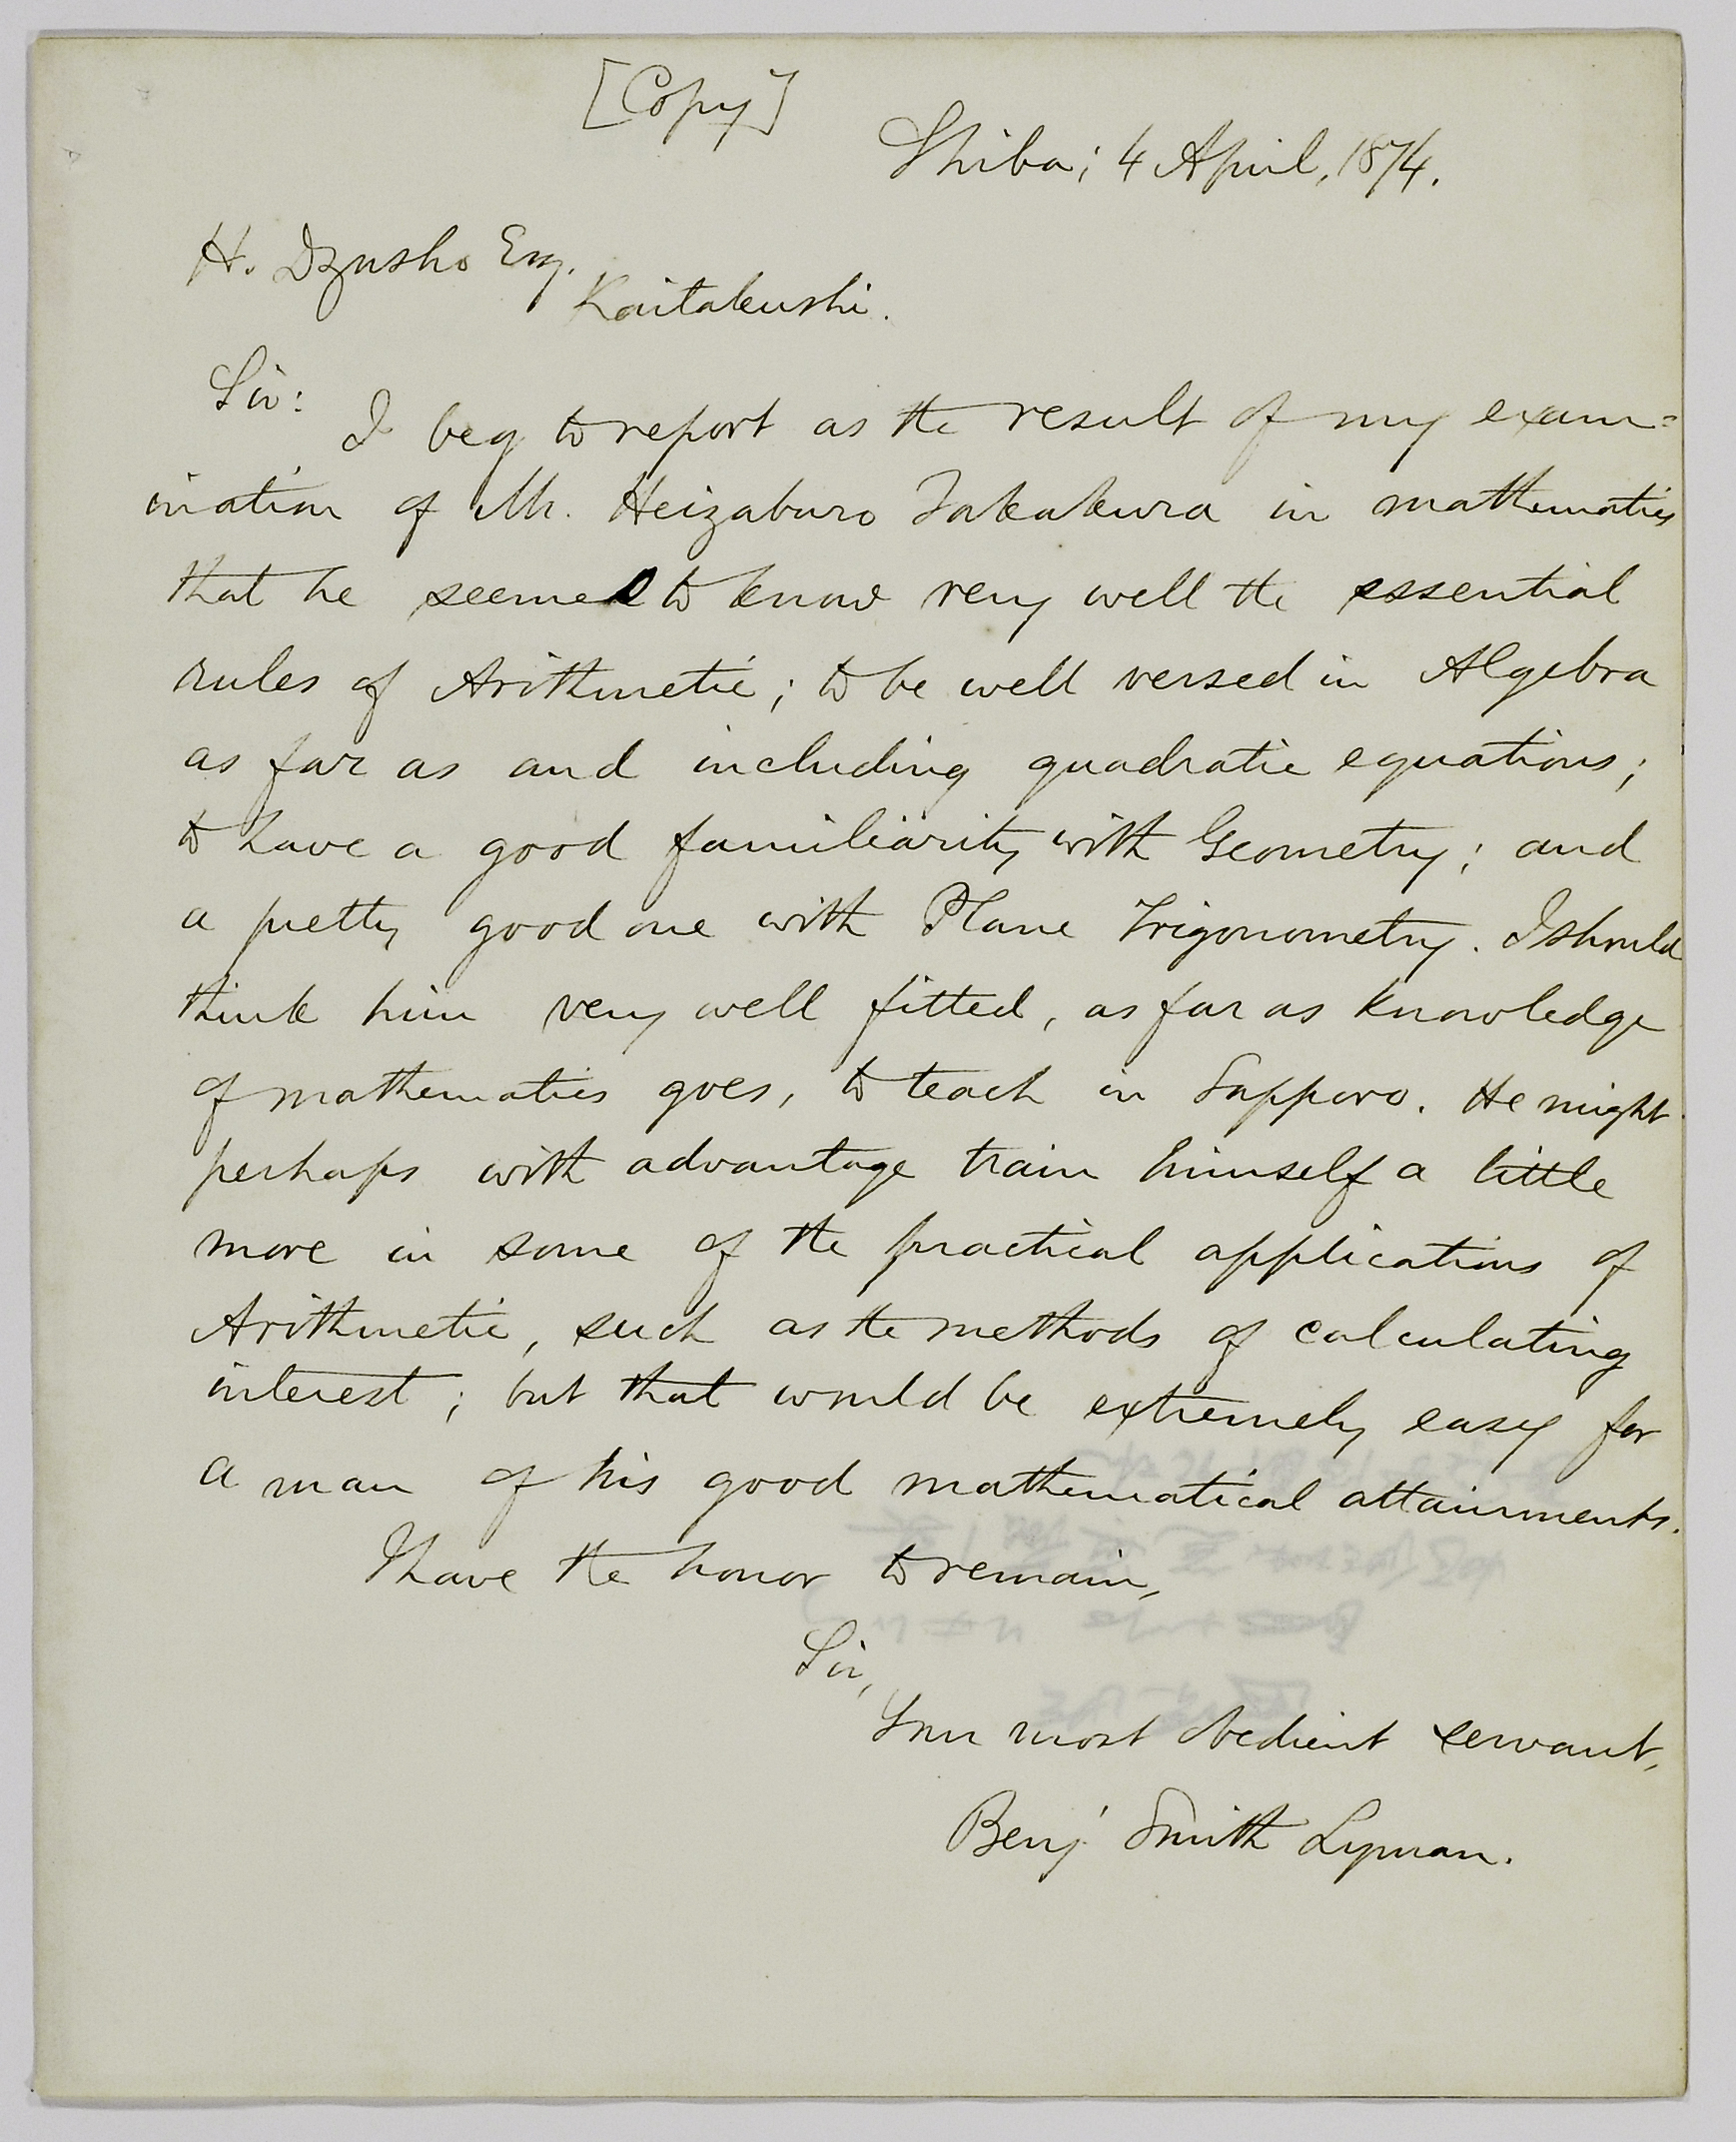 [Copy]
Shiba; 4 April, 1874.
H. Dzusho Esq.
Kaitakushi.
Sir:
I beg to report as the result of my exam=
ination of Mr. Heizaburo Takakura in mathematics
that he seemed to know very well the essential
rules of Arithmetic; to be well versed in Algebra
as far as and including quadratic equations;
to have a good familiarity with Geometry; and
a pretty good one with Plane Trigonometry. I should
think him very well fitted, as far as knowledge
of mathematics goes, to teach in Sapporo. He might
perhaps with advantage train himself a little
more in some of the practical applications of
Arithmetic, such as the methods of calculating
interest; but that would be extremely easy for
a man of his good mathematical attainments.
I have the honor to remain,
Sir,
Your most obedient servant,
Benj. Smith Lyman.